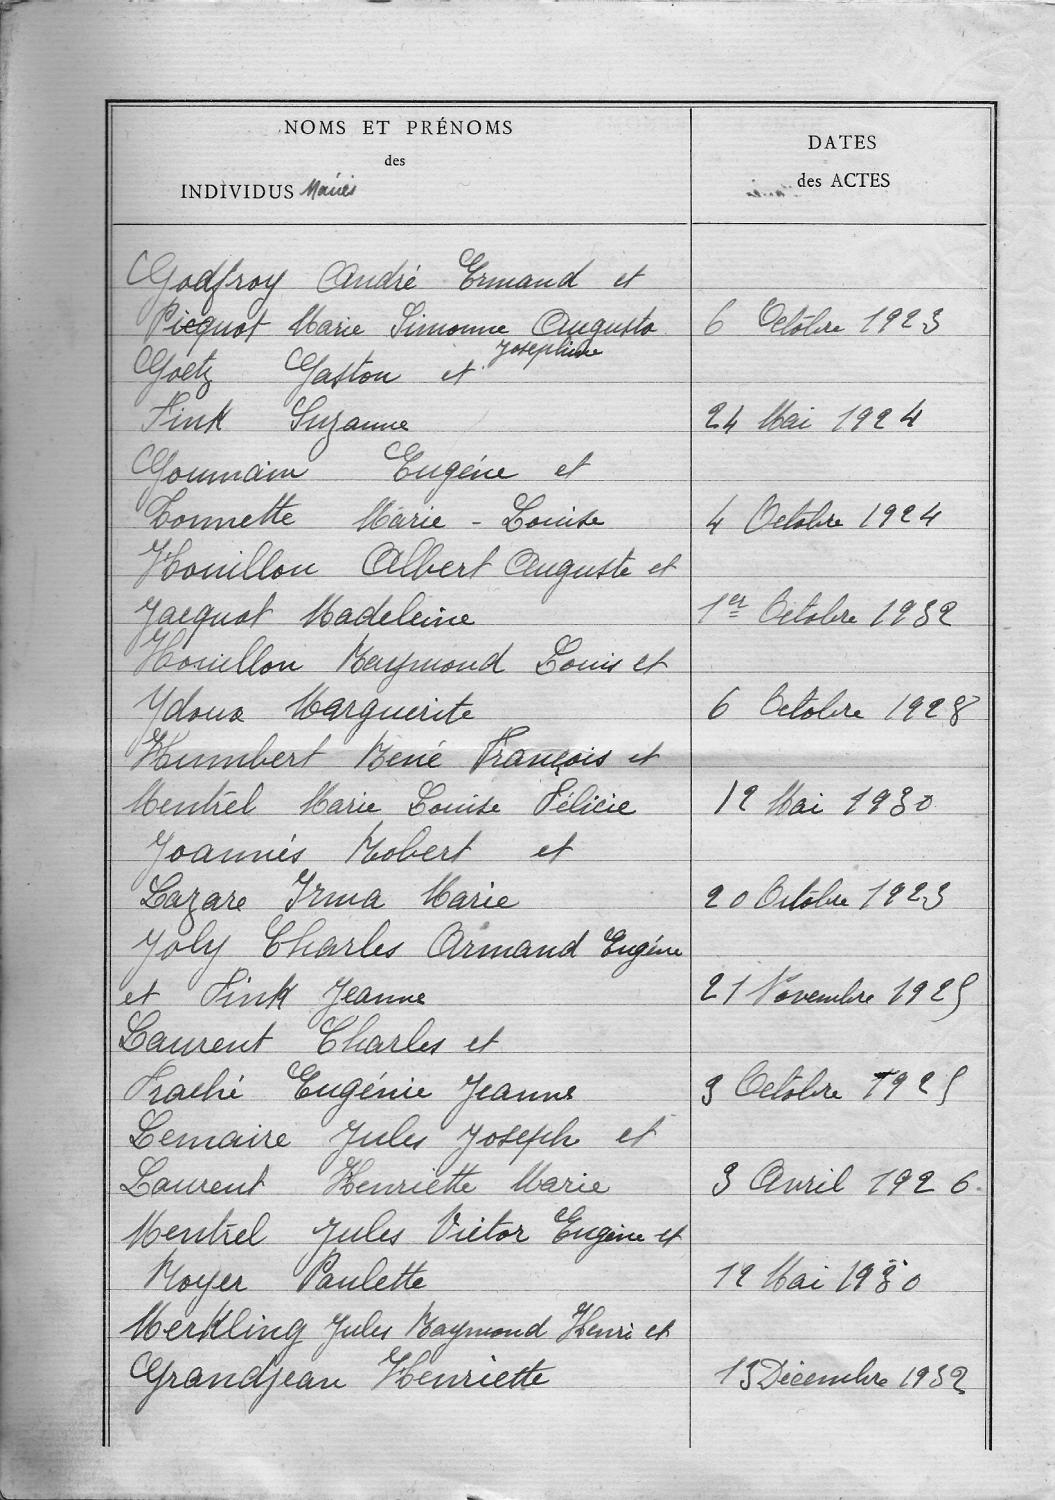 NOMS ET PRÉNOMS
des
INDIVIDUS Mariés
DATES
des ACTES
Godfroy André Ermand et
Picquot Marie Simonne Augusta 6 Octobre 1923
Joséphine
Goetz Gaston et
Fink Suzanne 24 Mai 1924
Goumain Eugéne et
Tonnette Marie - Louise 4 Octobre 1924
Houillon Albert Auguste et
Jacquot Madeleine 1er Octobre 1932
Houillon Raymond Louis et
Ydoux Marguerite 6 Octobre 1928
Humbert René François et
Mentrel Marie Louise Félicie 12 Mai 1930
Joannés Robert et
Lazare Irma Marie 20 Octobre 1923
Joly Charles Armand Eugéne
et Fink Jeanne 21 Novembre 1925
Laurent Charles et
Fraché Eugénie Jeanne 3 Octobre 1925
Lemaire Jules Joseph et
Laurent Henriette Marie 3 Avril 1926.
Mentrel Jules Victor Eugéne et
Royer Paulette 12 Mai 1930
Merkling Jules Raymond Henri et
Grandjean Henriette 13 Décembre 1932